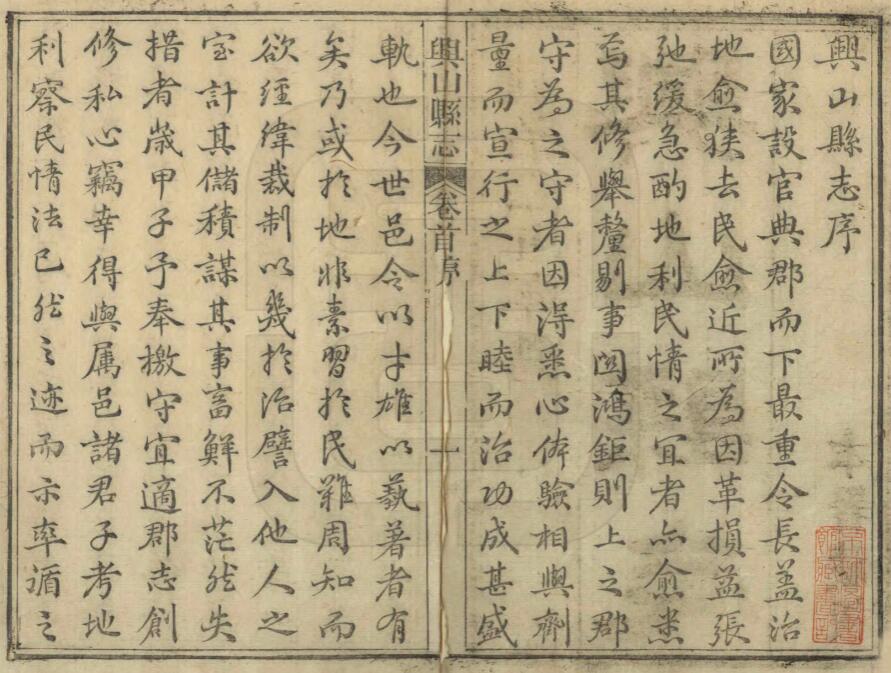 興山縣志序
國家設官典郡而下最重令長盖治
地愈狹去民愈近所為因革損益張
弛緩急酌地利民情之宜者亦愈悉
焉其修舉釐剔事関鴻鉅則上之郡
守為之守者因淂悉心体驗相與劑
量而宣行之上下睦而治功成甚盛
興山縣志 卷首序 一
軌也今世邑令以才雄以藝著者有
矣乃或扵地非素習扵民難周知而
欲經緯裁制以幾扵治譬入他人之
室計其儲積謀其事畜鮮不茫然失
措者歲甲子予奉檄守宜適郡志創
修私心竊幸得與属邑諸君子考地
利察民情法已然之迹而亦率循之